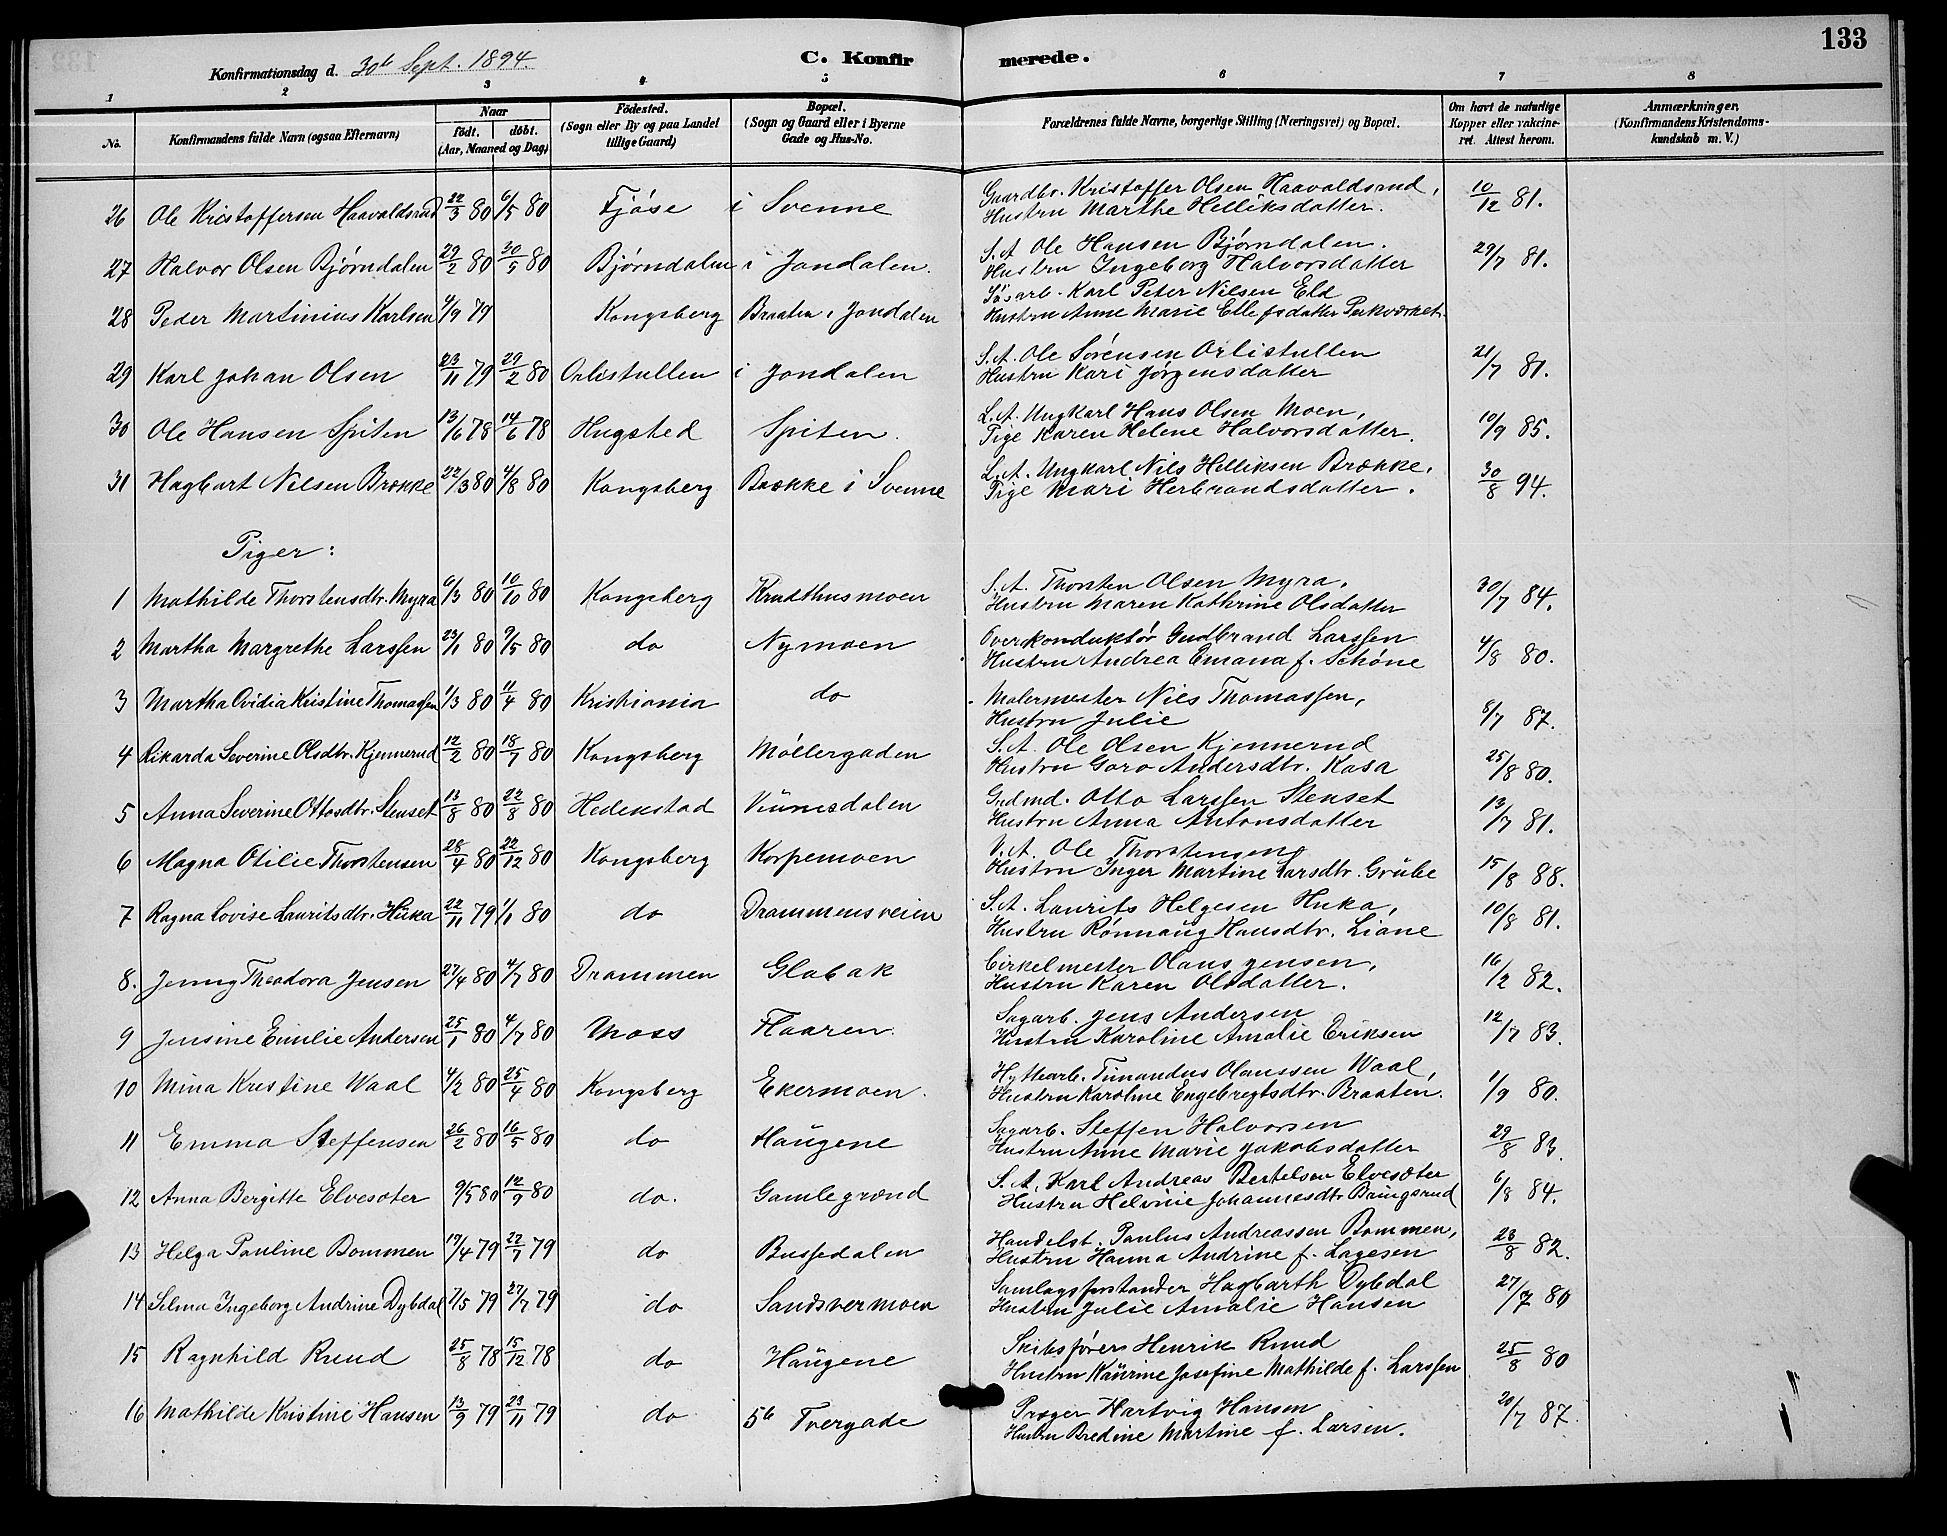 133
Konfirmationsdag d. 30te Sept. 1894.
C. Konfirmerede.
1 2 3 4 5 6 7 8
No.
Konfirmandens fulde Navn (ogsaa Efternavn)
Naar
födt. döbt.
(Aar, Maaned og Dag)
Födested.
(Sogn eller By og paa Landet
tillige Gaard)
Bopæl.
(Sogn og Gaard eller i Byerne
Gade og Hus-No.
Forældrenes fulde Navne, borgerlige Stilling (Næringsvei) og Bopæl.
Om havt de naturlige
Kopper eller vakcine-
ret. Attest herom.
Anmærkninger.
(Konfirmandens Kristendoms-
kundskab m. V.)
26 Ole Kristoffersen Haavaldsrud 22/3 80 6/5 80 Fjöse i Svenne Gaardbr. Kristoffer Olsen Haavaldsrud, 10/12 81.
Hustru Marthe Helliksdatter.
27 Halvor Olsen Bjørndalen 29/2 80 30/5 80 Bjørndalen i Jondalen. S.A. Ole Hansen Bjørndalen. 29/7 81.
Hustru Ingeborg Halvorsdatter
28 Peder Martinius Karlsen 9/9 79 Kongsberg Braaten i Jondalen Karl Peter Nilsen Eld
Hustru Anne Marie Ellefsdatter
29 Karl Johan Olsen 23/11 79 29/2 80 Orlistullen i Jondalen S.A. Ole Sörensen Orlistullen 21/7 81.
Hustru Kari Jørgensdatter
30 Ole Hansen Spiten 13/6 78 14/6 78 Hugsted Spiten. L.A. Ungkarl Hans Olsen Moen, 10/9 85.
Pige Karen Helene Halvorsdatter.
31 Hagbart Nilsen Brække 22/3 80 4/8 80 Kongsberg Brække i Svenne L.A. Ungkarl Nils Helliksen Brække, 30/8 94.
Pige Mari Herbrandsdatter.
Piger:
1 Mathilde Thorstensdtr. Myra 6/3 80 10/10 80 Kongsberg Krudthusmoen S.A. Thorsten Olsen Myra, 30/7 84.
Hustru Maren Kathrine Olsdatter
2 Martha Margrethe Larssen 23/1 80 9/5 80 do Nymoen Overkonduktör Gudbrand Larssen 4/8 80.
Hustru Andrea Emana f. Schöne
3 Martha Ovidia Kristine Thomassen 1/3 80 11/4 80 Kristiania do Malermester Nils Thomassen, 8/7 87.
Hustru Julie
4 Rikarda Severine Olsdtr. Kjennerud 12/2 80 18/7 80 Kongsberg Möllergaden S.A. Ole Olsen Kjennerud 25/8 80.
Hustru Goro Andersdtr. Kasa
5 Anna Severine Ottosdtr. Stenset 12/8 80 22/8 80 Hedenstad Vinnesdalen Gudmd. Otto Larssen Stenset 13/7 81.
Hustru Anna Antonsdatter
6 Magna Otilie Thorstensen 28/4 80 22/12 80 Kongsberg Korpemoen V.A. Ole Thorstensen 15/8 88.
Hustru Inger Martine Larsdtr. Grübe
7 Ragna Lovise Lauritsdtr. Huka 22/11 79 1/1 80 do Drammensveien S.A. Laurits Helgesen Huka, 10/8 81.
Hustru Rönnaug Hansdtr. Liane
8. Jenny Theodora Jensen 27/4 80 4/7 80 Drammen Glabak Cirkelmester Olaus Jensen, 16/2 82.
Hustru Karen Olsdatter.
9 Jensine Emilie Andersen 25/1 80 4/7 80 Moss Flaaren. Sagarb. Jens Andersen 12/7 83.
Hustru Karoline Amalie Eriksen
10 Mina Kristine Waal 4/2 80 25/4 80 Kongsberg Ekermoen. Hyttearb. Timandus Olaussen Waal, 1/9 80.
Hustru Karoline Engebregtsdtr. Braaten.
11 Emma Steffensen 26/2 80 16/5 80 do Haugene Sagarb. Steffen Halvorsen 29/8 83.
Hustru Anne Marie Jakobsdatter
12 Anna Bergitte Elvesæter 9/5 80 12/9 80 do. Gamlegrænd S.A. Karl Andreas Bertelsen Elvesæter 6/8 84.
Hustru Helvine Johannesdtr.
13 Helga Pauline Bommen 17/4 79 22/7 79 do Bussedalen Handelsb. Paulus Andreassen Bommen, 28/8 82.
Hustru Hanna Andrine f. Lagesen
14 Selma Ingeborg Andrine Dybdal 7/5 79 27/7 79 do Sandsvermoen Samlagsforstander Hagbarth Dybdal 27/7 80
Hustru Julie Amalie Hansen
15 Ragnhild Ruud 25/8 78 15/12 78 do Haugene Henrik Ruud 25/8 80
Hustru Kaurine Josefine Mathilde f. Larssen
16 Mathilde Kristine Hansen 13/9 79 23/11 79 do 5te Tvergade Præger Hartvig Hansen 20/7 87.
Hustru Bredine Martine f. Larsen.